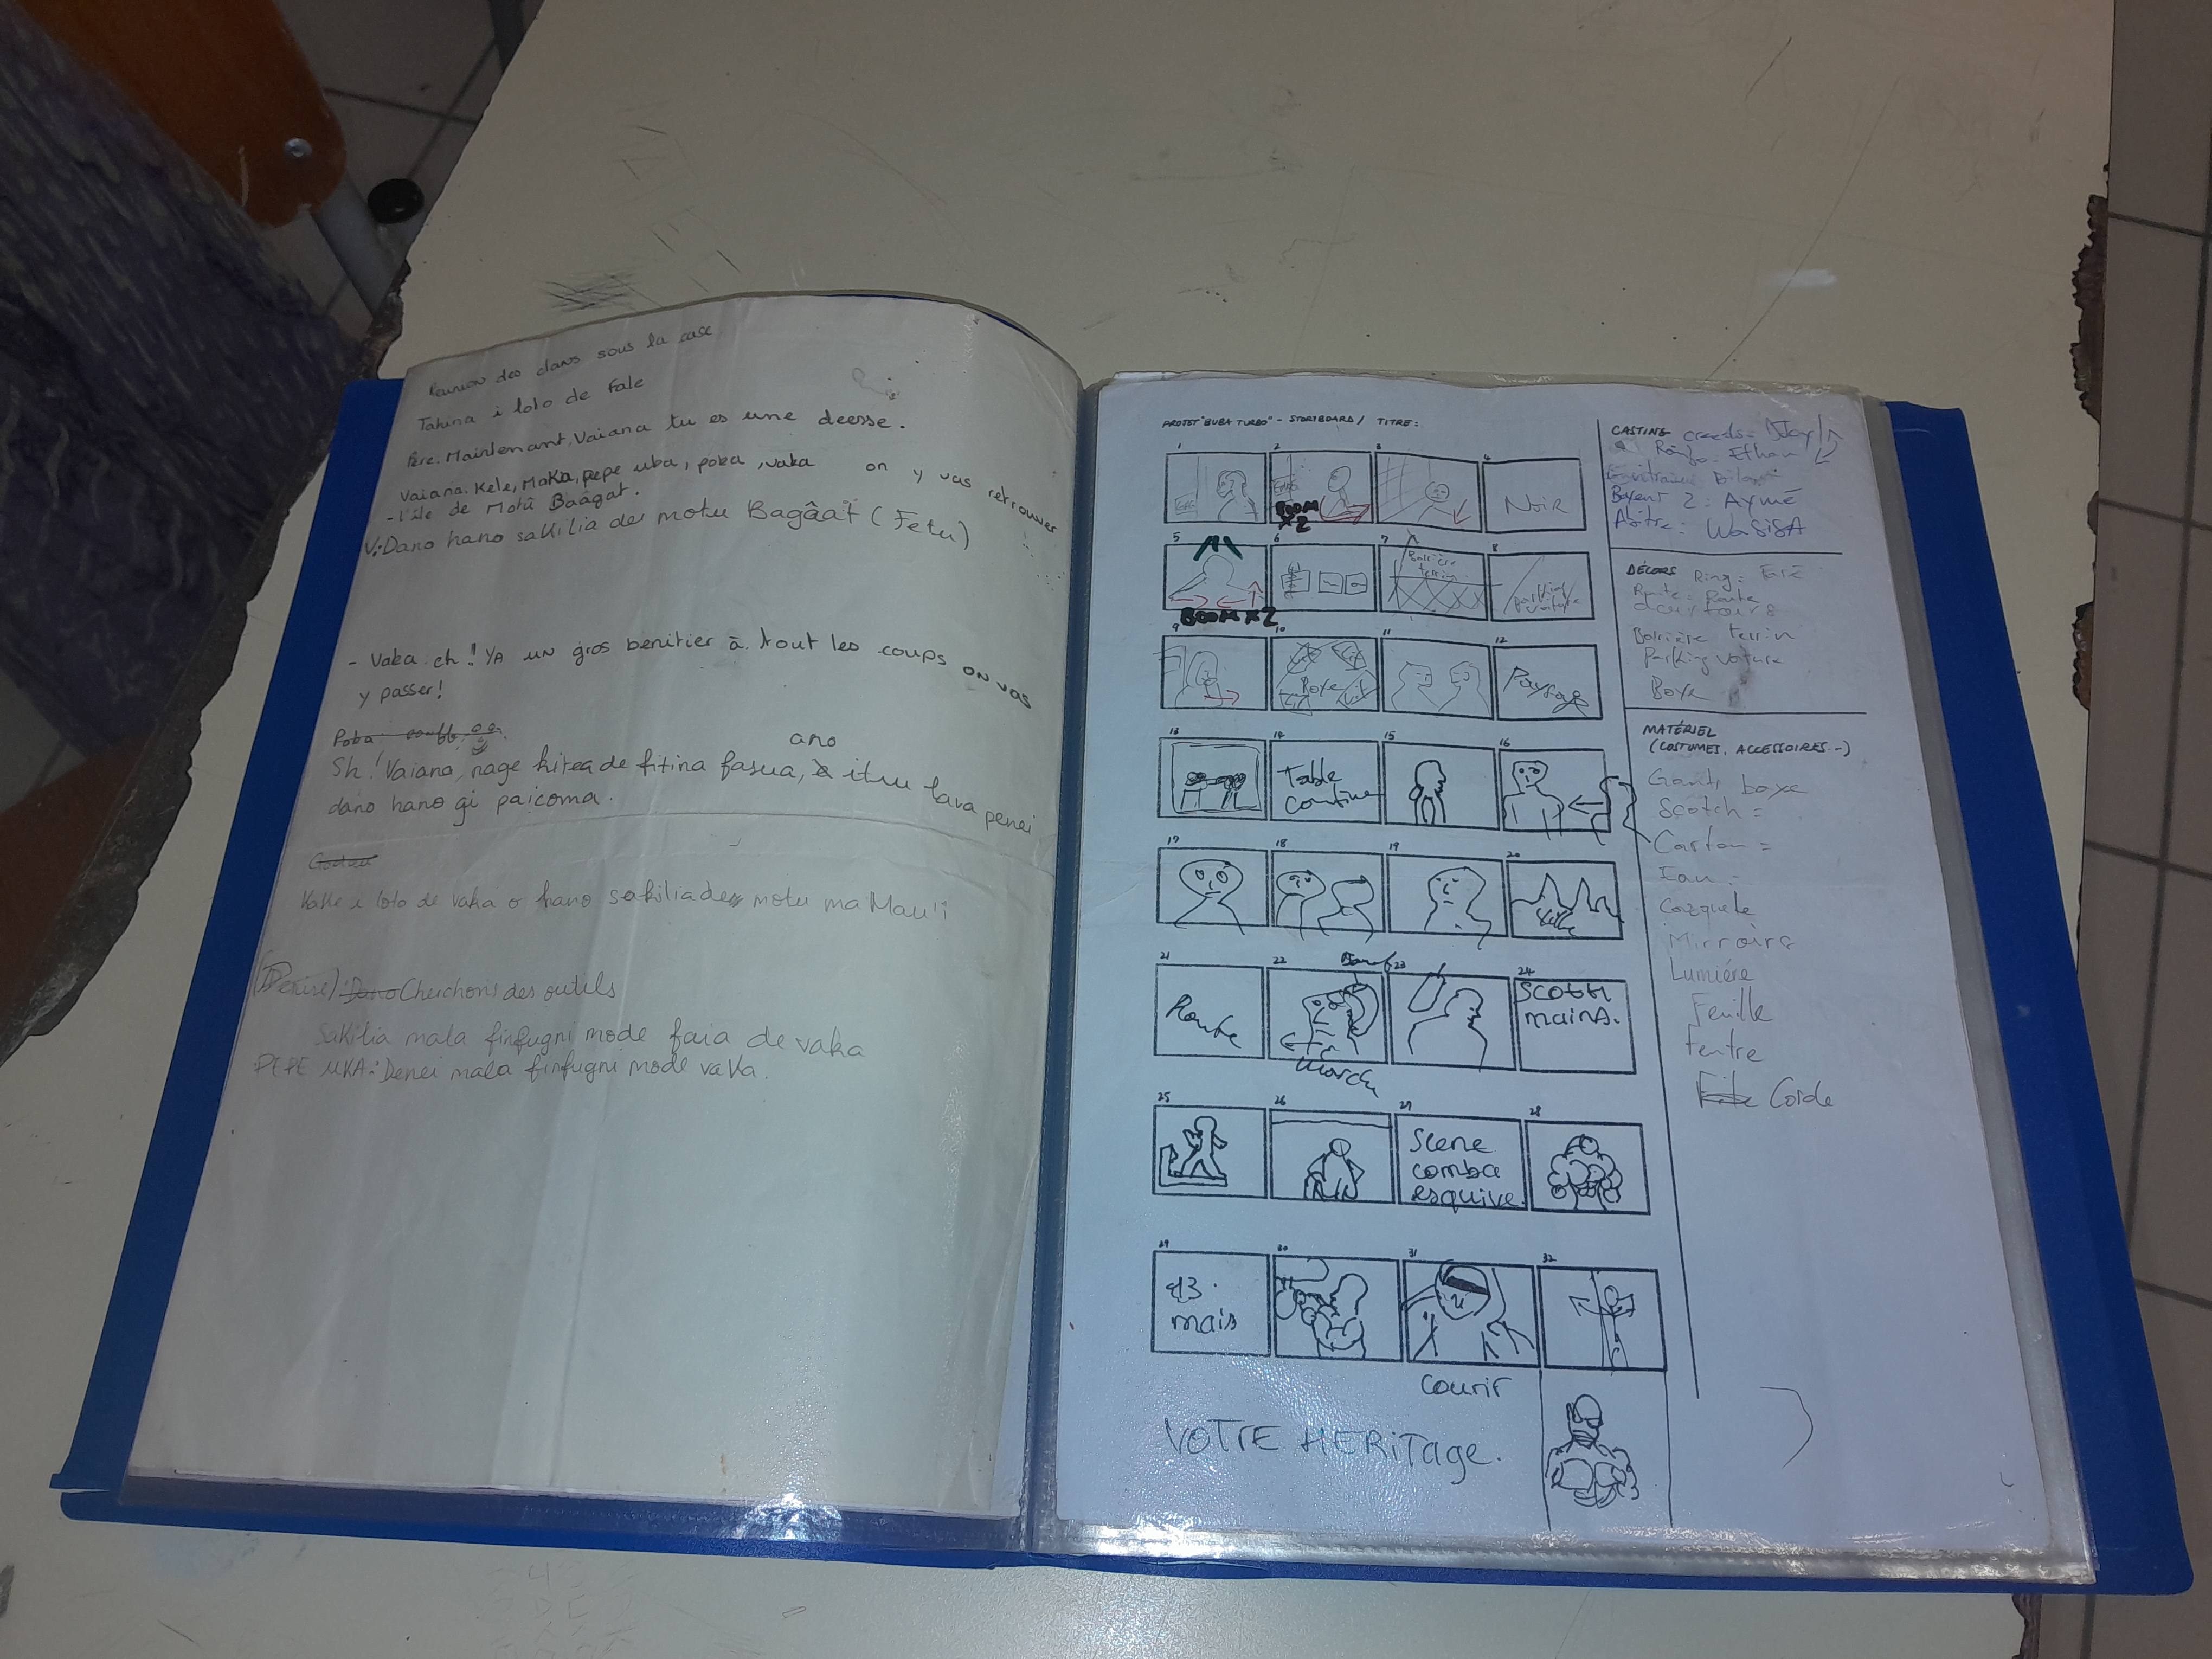 Reunion des clans sous la case
Takina i loto de Fale
Père. Maintenant, Vaiana tu es une deesse.
Vaiana. Kele, Maka, pepe uba, poba, vaka on y vas retrouver
- l'île de Motū Baâgat.
V: Dano hano sakilia de motu Bagâat (Fetu)
- Vaka. eh!! YA UN gros benitier à tout les coups on vas
y passer!
Poba
ano
Sh! Vaiana, nage kitea de fitina fasua, è ituu lava penei
dano hano gi paicoma.
Kake i loto de vaka o hano sakilia de motu ma Mau'i
(Denise): Dano Cherchons des outils
Sakilia mala finfugni mode faia de vaka
PEPE UKA: Denei mala finfugni mode vaka.
PROJET "BUBA TURBO" - STORIBOARD / TITRE:
1 2 3 4
BOOM
X2
NOIR
5 6 7 8
Barrière
terrain
parking
voiture
BOOM X2
9 10 11 12
Boxe
Paysage
13 14 15 16
Table
cantine
17 18 19 20
21 22 23 24
Route
Scotth
mains.
March
25 26 27 28
Scene
comba
esquive.
29 30 31 32
mais
courir
VOTRE HERITAGE.
CASTING creeds =
Ringo. Ethan
Boxeur 2: Aymé
Abitre: WaSISA
DÉCORS Ring: Faré
Route: Route
Barrière terrin
Parking voiture
Boxe
MATÉRIEL
(COSTUMES, ACCESSOIRES...)
Gants boxe
Scotch =
Carton =
Eau =
Casquete
Mirroirs
Lumiére
Feuille
Fentre
Corde